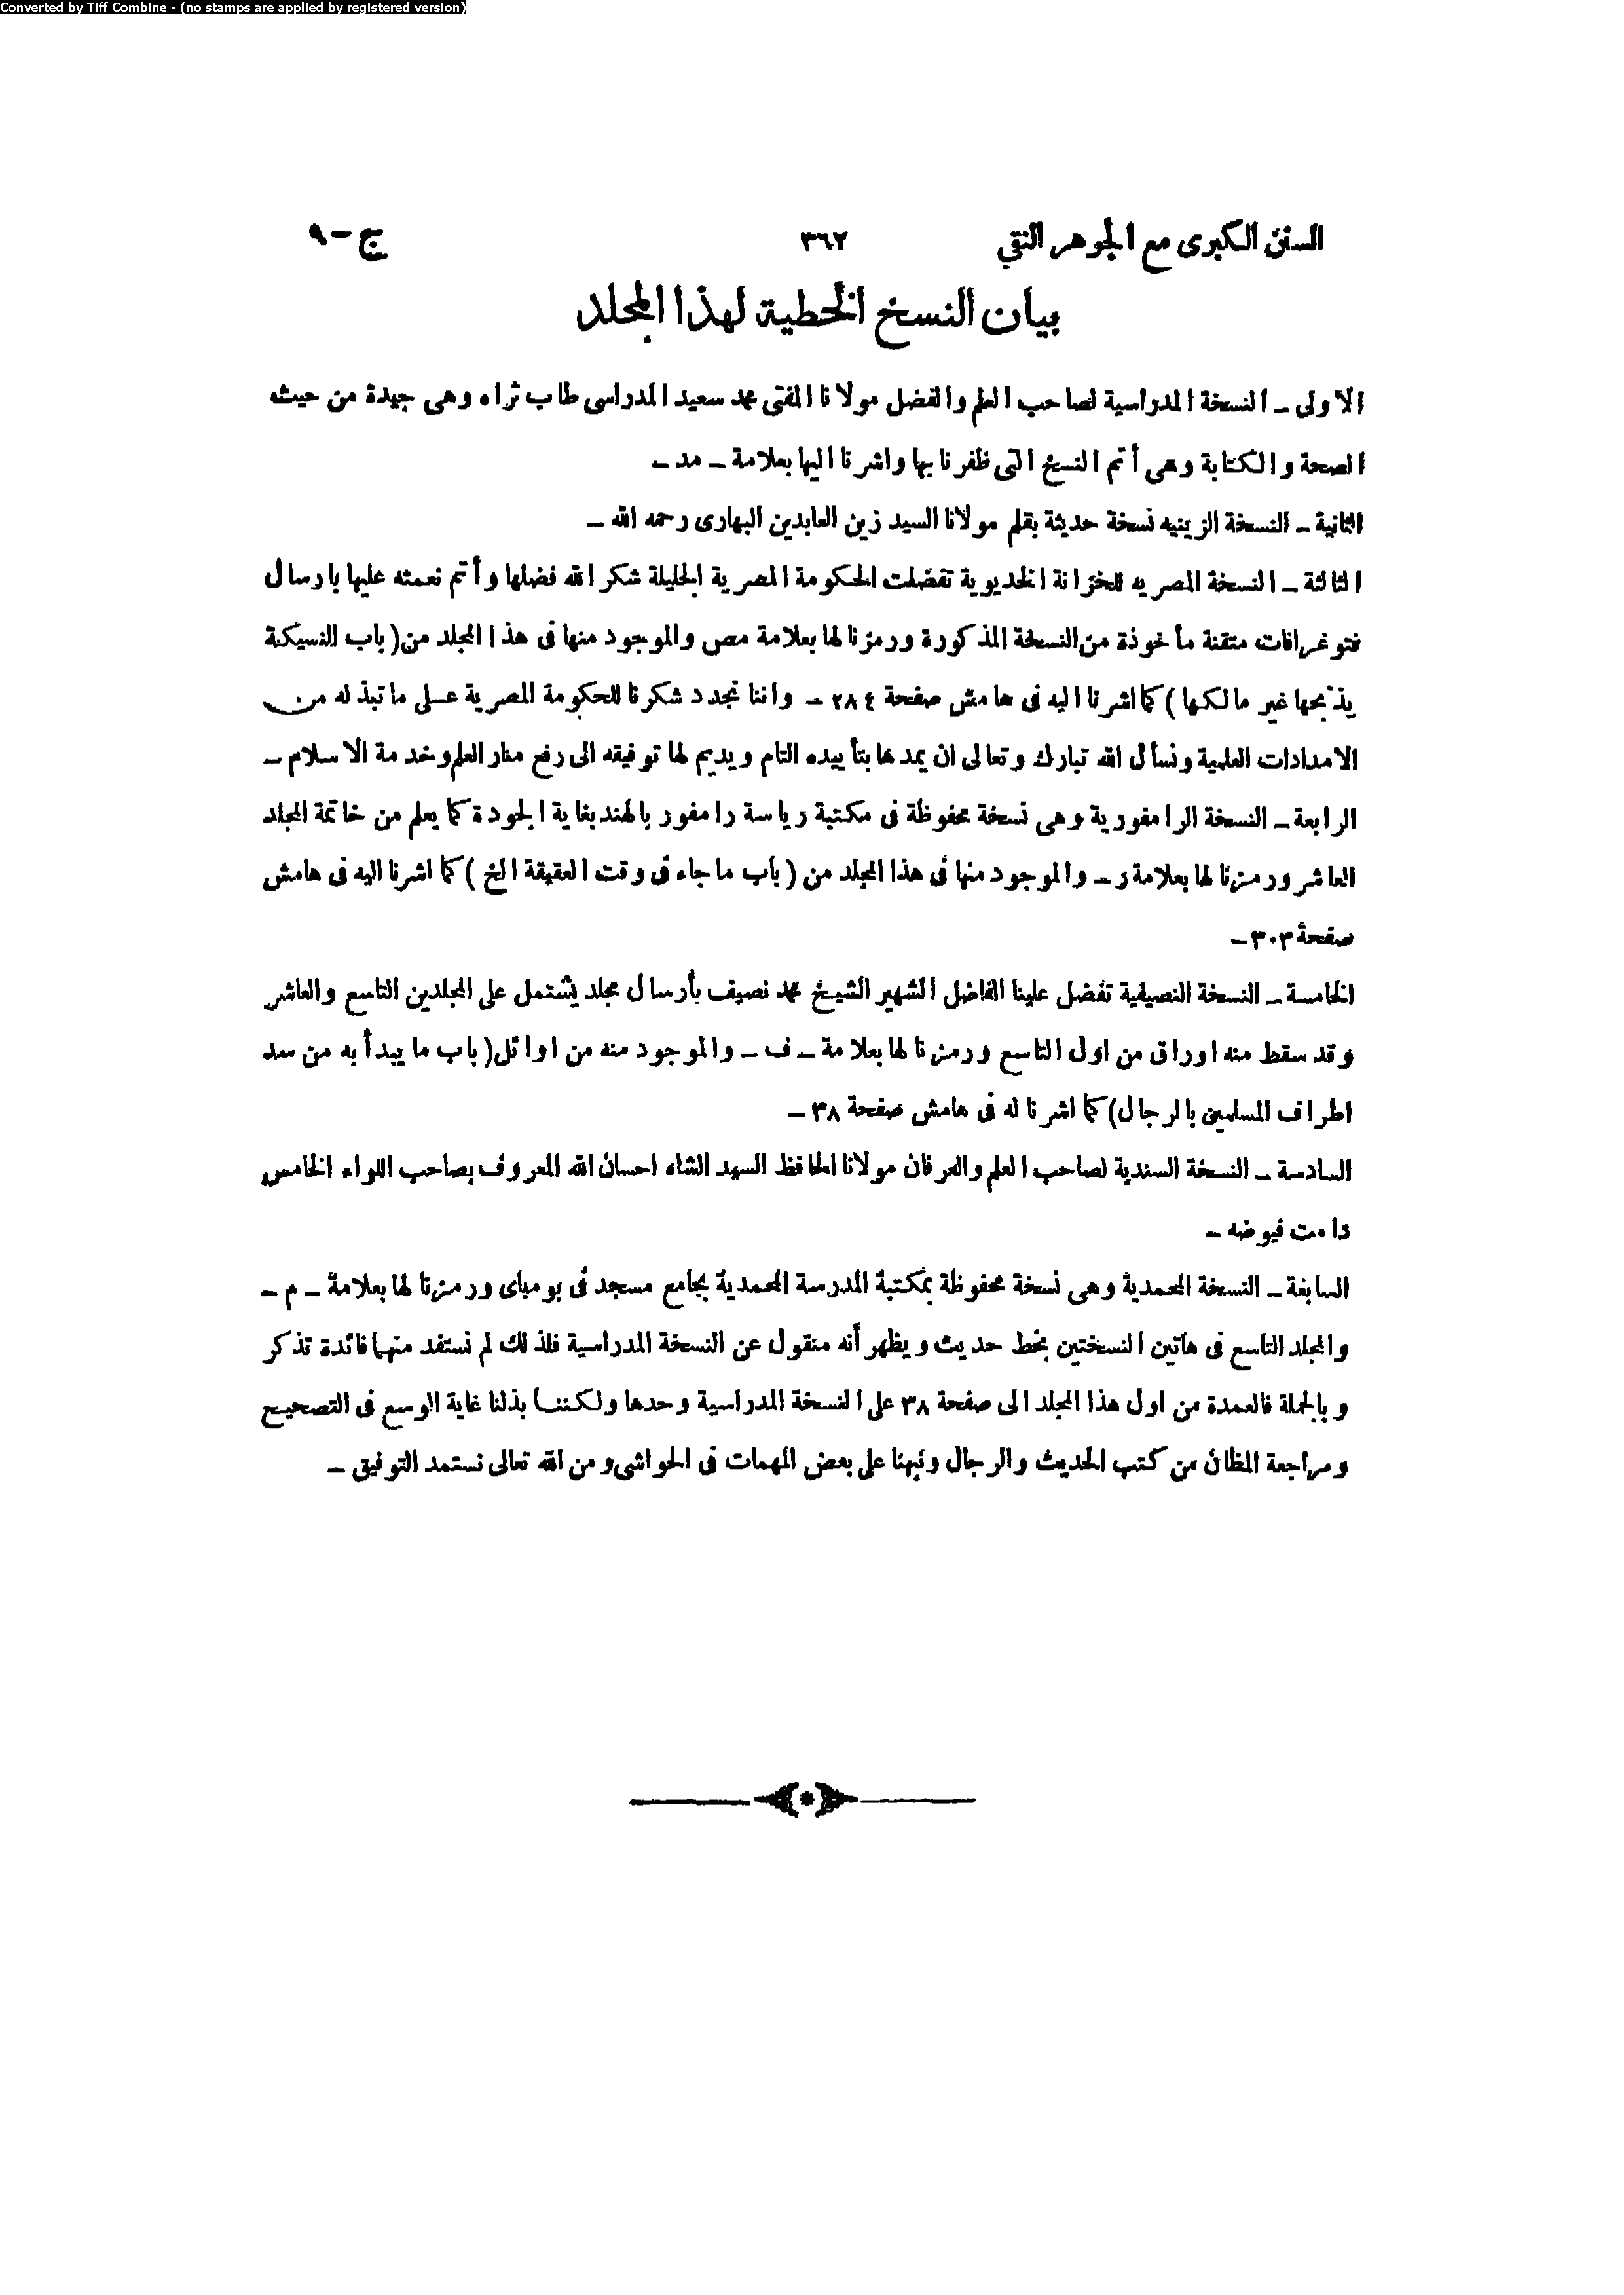 Converted by Tiff Combine - (no stamps are applied by registered version)
السنن الكبرى مع الجوهر النقي ٣٦٢ ج - ٩
بيان النسخ الخطية لهذا المجلد
الاولى ـ النسخة المدراسية لصاحب العلم والفضل مولانا المفتى محمد سعيد المدراسى طاب ثراه وهى جيدة من حيث
الصحة والكتابة وهى أتم النسخ التى ظفرنا بها واشرنا اليها بعلامة ـ مد ـ
الثانية ـ النسخة الزينيه نسخة حديثة بقلم مولانا السيد زين العابدين البهارى رحمه الله ـ
الثالثة ـ النسخة المصريه للخزانة الخديوية تفضلت الحكومة المصرية الجليلة شكر الله فضلها وأتم نعمته عليها بارسال
فتوغرافات متقنة مأخوذة من النسخة المذكورة ورمزنا لها بعلامة مص والموجود منها فى هذا المجلد من (باب النسيكة
يذبحها غير مالكها) كما اشرنا اليه فى هامش صفحة ٢٨٤ ـ واننا نجدد شكرنا للحكومة المصرية عـلى ما تبذله من
الامدادات العلمية ونسأل الله تبارك وتعالى ان يمدها بتأييده التام ويديم لها توفيقه الى رفع منار العلم وخدمة الاسلام ـ
الرابعة ـ النسخة الرامفورية وهى نسخة محفوظة فى مكتبة رياسة رامفور بالهند بغاية الجودة كما يعلم من خاتمة المجلد
العاشر ورمزنا لها بعلامة ر ـ والموجود منها فى هذا المجلد من (باب ما جاء فى وقت العقيقة الخ) كما اشرنا اليه فى هامش
صفحة ٣٠٣ ـ
الخامسة ـ النسخة النصيفية تفضل علينا الفاضل الشهير الشيخ محمد نصيف بأرسال مجلد يشتمل على المجلدين التاسع والعاشر
وقد سقط منه اوراق من اول التاسع ورمزنا لها بعلامة ـ ف ـ والموجود منه من اوائل (باب ما يبدأ به من سد
اطراف المسلمين بالرجال) كما اشرنا له فى هامش صفحة ٣٨ ـ
السادسة ـ النسخة السندية لصاحب العلم والعرفان مولانا الحافظ السيد الشاه احسان الله المعروف بصاحب اللواء الخامس
دامت فيوضه ـ
السابعة ـ النسخة المحمدية وهى نسخة محفوظة بمكتبة المدرسة المحمدية بجامع مسجد فى بومباى ورمزنا لها بعلامة ـ م ـ
والمجلد التاسع فى هاتين النسختين بخط حديث ويظهر أنه منقول عن النسخة المدراسية فلذلك لم نستفد منهما فائدة تذكر
وبالجملة فالعمدة من اول هذا المجلد الى صفحة ٣٨ على النسخة المدراسية وحدها ولكننا بذلنا غاية الوسع فى التصحيح
ومراجعة المظان من كتب الحديث والرجال ونبهنا على بعض المهمات فى الحواشى ومن الله تعالى نستمد التوفيق ـ